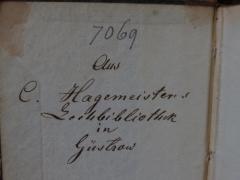 7069
Aus
C. Hagemeisters
Leihbibliothek
in
Güstrow